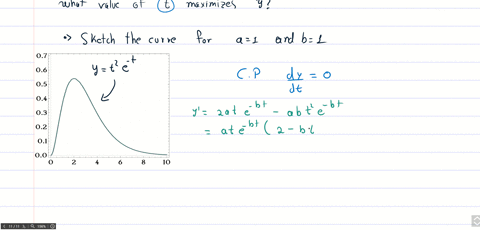 what value of t maximizes y?
•> Sketch the curve for a=1 and b=1
0.7
0.6
0.5
0.4
0.3
0.2
0.1
0.0
0 2 4 6 8 10
y = t² e^-t
C.P dy/dt = 0
y' = 2at e^-bt - abt² e^-bt
= at e^-bt ( 2 - bt